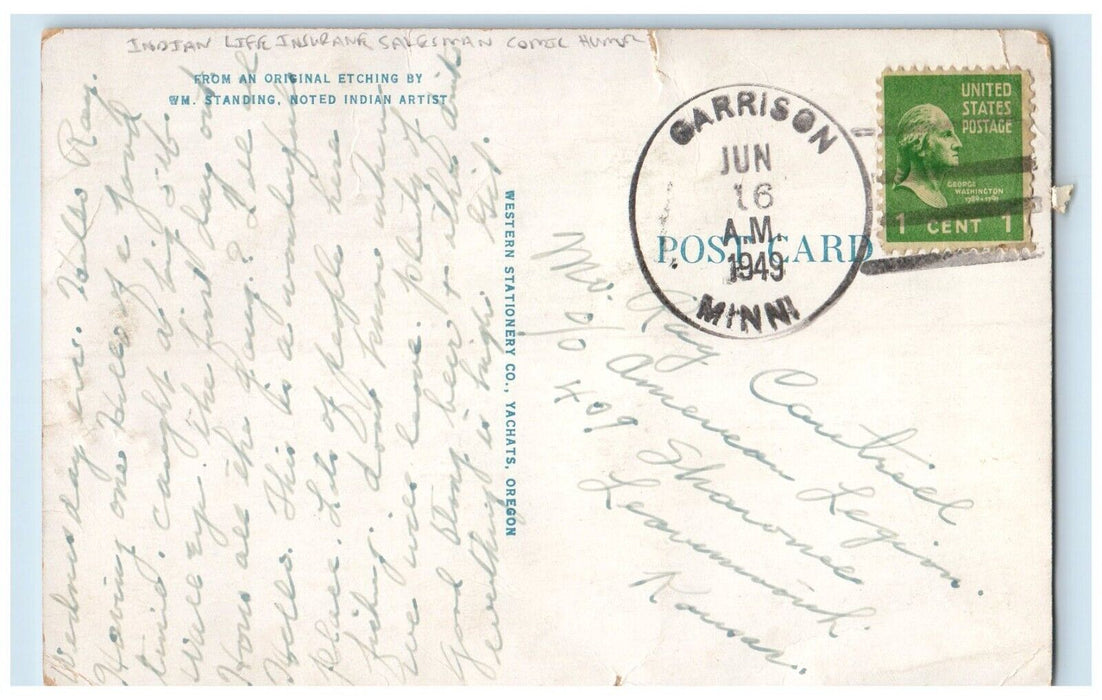 INDIAN LIFE INSURANE SALESMAN COMIC HUMOR
FROM AN ORIGINAL ETCHING BY
WM. STANDING, NOTED INDIAN ARTIST
Wednesday eve. Hello Ray.
Having one Hell of a good
time. caught a big 5 lb.
Wall eye the first day out
Hows all the gang? I feel
Hello. This is a wonderful
place. Lots of people here
fishing. dont know when
we will leave. plenty of
Good strong beer & all the drink
everything is high.
WESTERN STATIONERY CO., YACHATS, OREGON
POST CARD
GARRISON
JUN
16
A.M.
1949
MINN
UNITED
STATES
POSTAGE
GEORGE
WASHINGTON
1789-1797
1 CENT 1
Mr. Ray Cantrell
c/o American Legion.
409 Shawnee
Leavenworth.
Kansas.